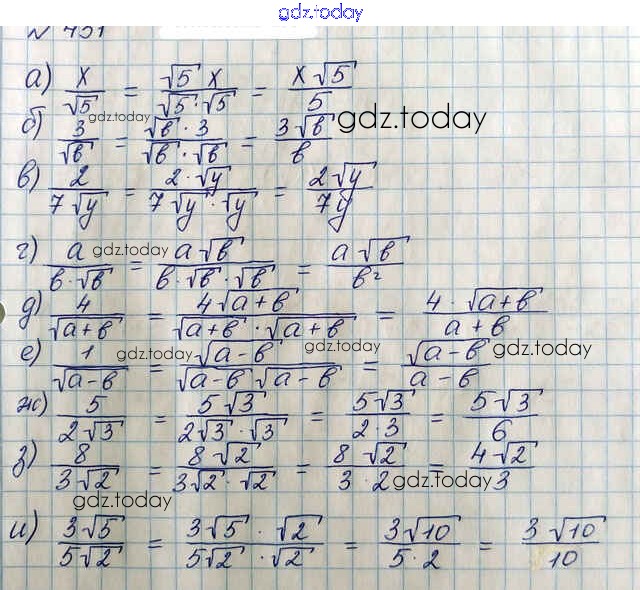 gdz.today
№ 431
а) x/√5 = √5 x/√5·√5 = x√5/5
б) 3/√b = √b·3/√b·√b = 3√b/b gdz.today
в) 2/7√y = 2·√y/7√y·√y = 2√y/7y
г) a/b·√b = a√b/b·√b·√b = a√b/b² gdz.today
д) 4/√a+b = 4√a+b/√a+b·√a+b = 4·√a+b/a+b
е) 1/√a-b = √a-b/√a-b √a-b = √a-b/a-b gdz.today gdz.today gdz.today
ж) 5/2√3 = 5√3/2√3·√3 = 5√3/2·3 = 5√3/6
з) 8/3√2 = 8√2/3√2·√2 = 8√2/3·2 = 4√2/3
gdz.today gdz.today
и) 3√5/5√2 = 3√5·√2/5√2·√2 = 3√10/5·2 = 3√10/10
gdz.today